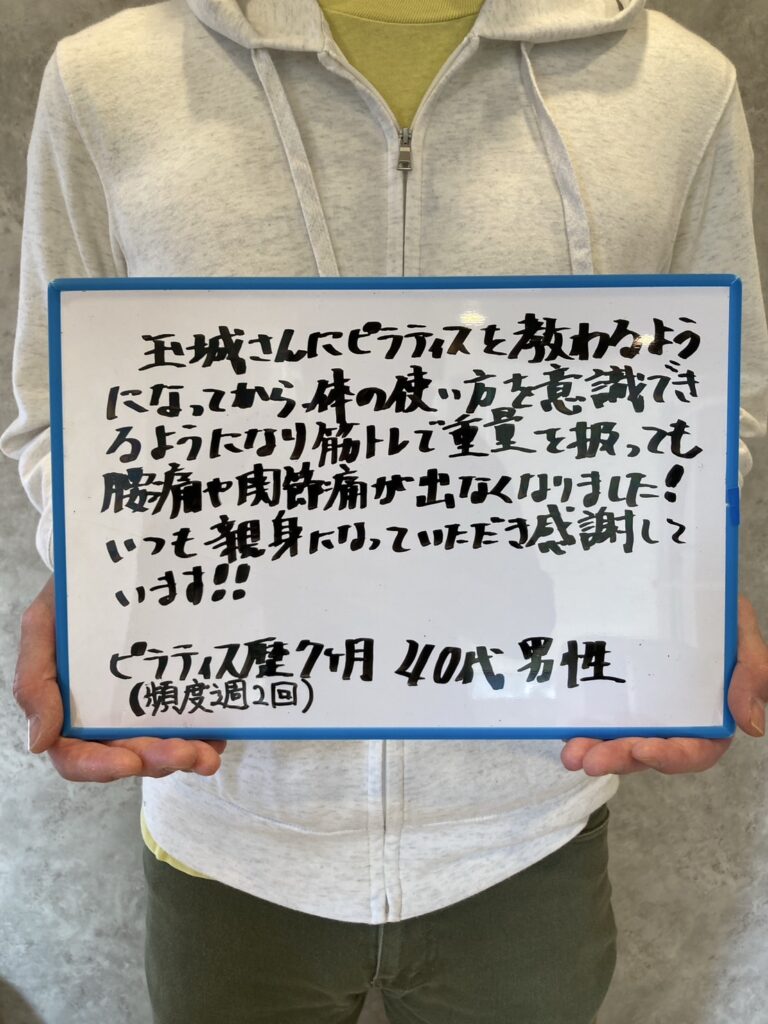 玉城さんにピラティスを教わるよう
になってから、体の使い方を意識でき
るようになり筋トレで重量を扱っても
腰痛や関節痛が出なくなりました!
いつも親身になっていただき感謝して
います!!
ピラティス歴7ヶ月 40代男性
(頻度週2回)